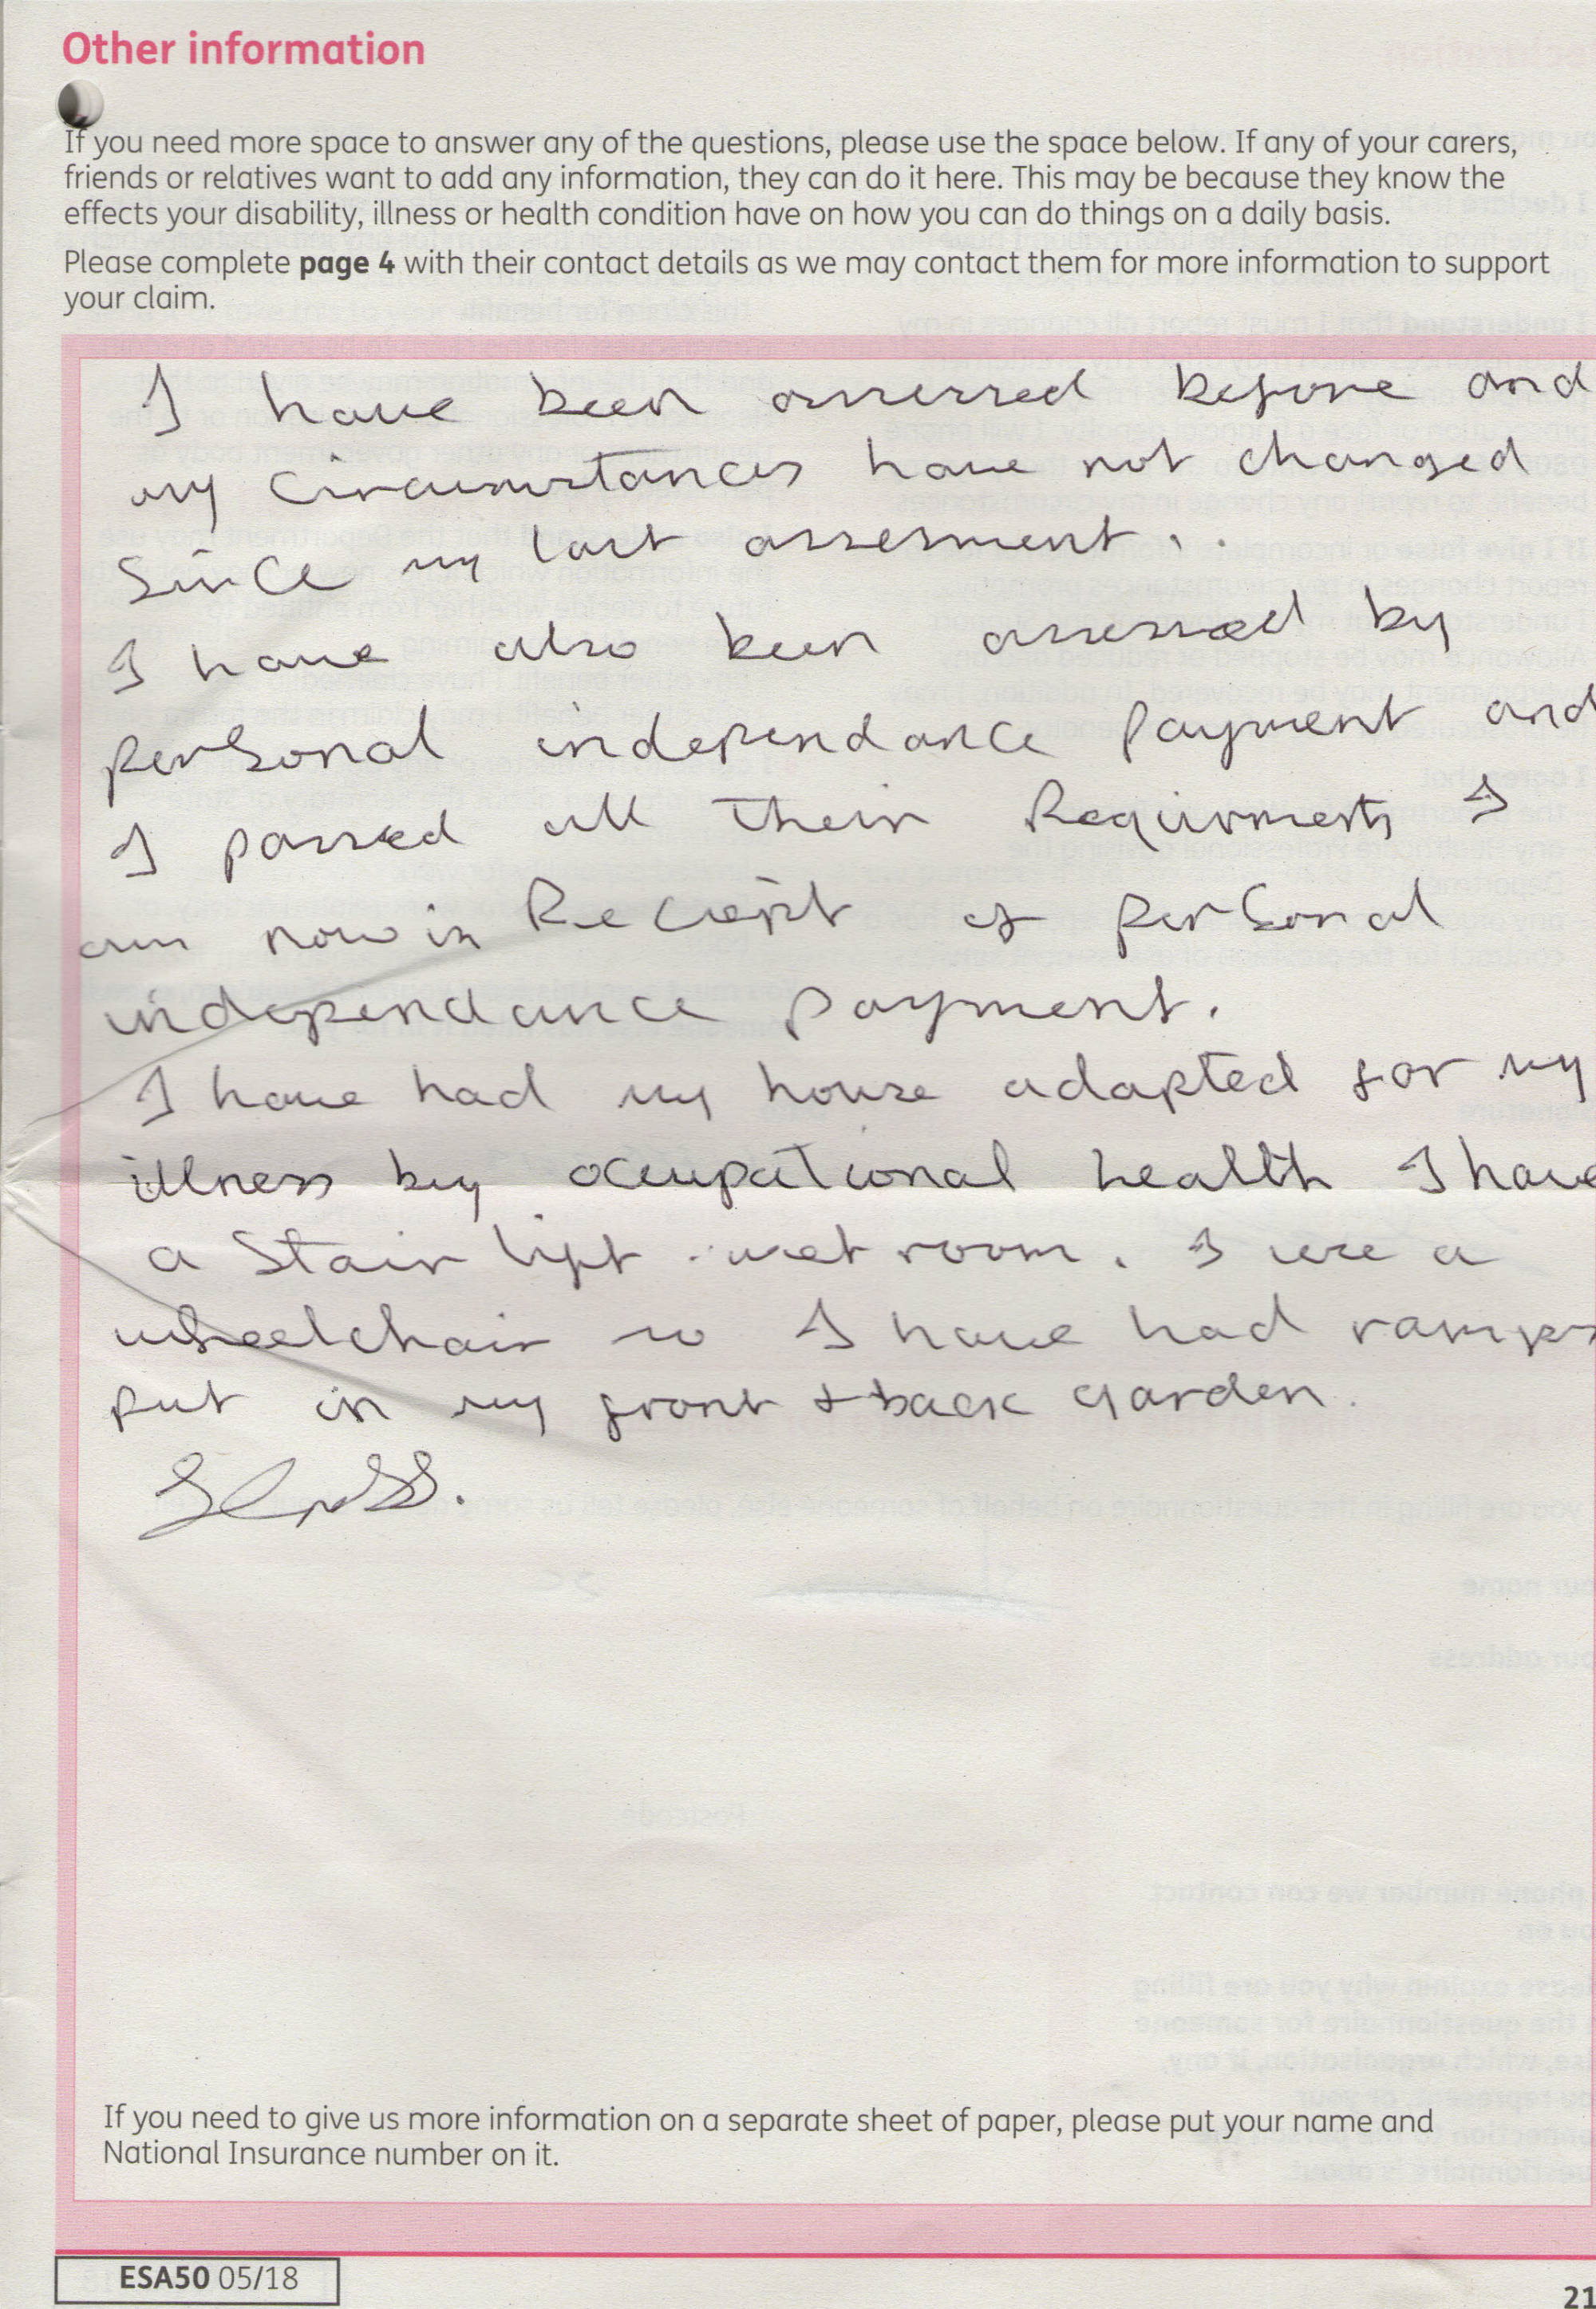 Other information
If you need more space to answer any of the questions, please use the space below. If any of your carers,
friends or relatives want to add any information, they can do it here. This may be because they know the
effects your disability, illness or health condition have on how you can do things on a daily basis.
Please complete page 4 with their contact details as we may contact them for more information to support
your claim.
I have been assessed before and
my circumstances have not changed
since my last assesment..
I have also been assessed by
personal independance payment and
I passed all their Requirments I
am now in Reciept of personal
independance payment.
I have had my house adapted for my
illness by ocupational health I have
a Stair lift . wet room. I use a
wheelchair so I have had ramps
put in my front + back garden.
If you need to give us more information on a separate sheet of paper, please put your name and
National Insurance number on it.
ESA50 05/18
21